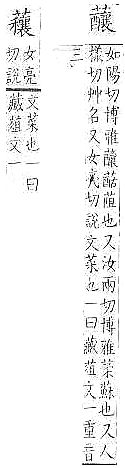 蘸
如陽切博雅釀𨣧葅也又汝兩切博雅菜蘇也又人
樣切艸名又女亮切說文菜也一曰藏葅文一重音
三
蘘
女亮
切說
文菜也一曰
藏葅文一